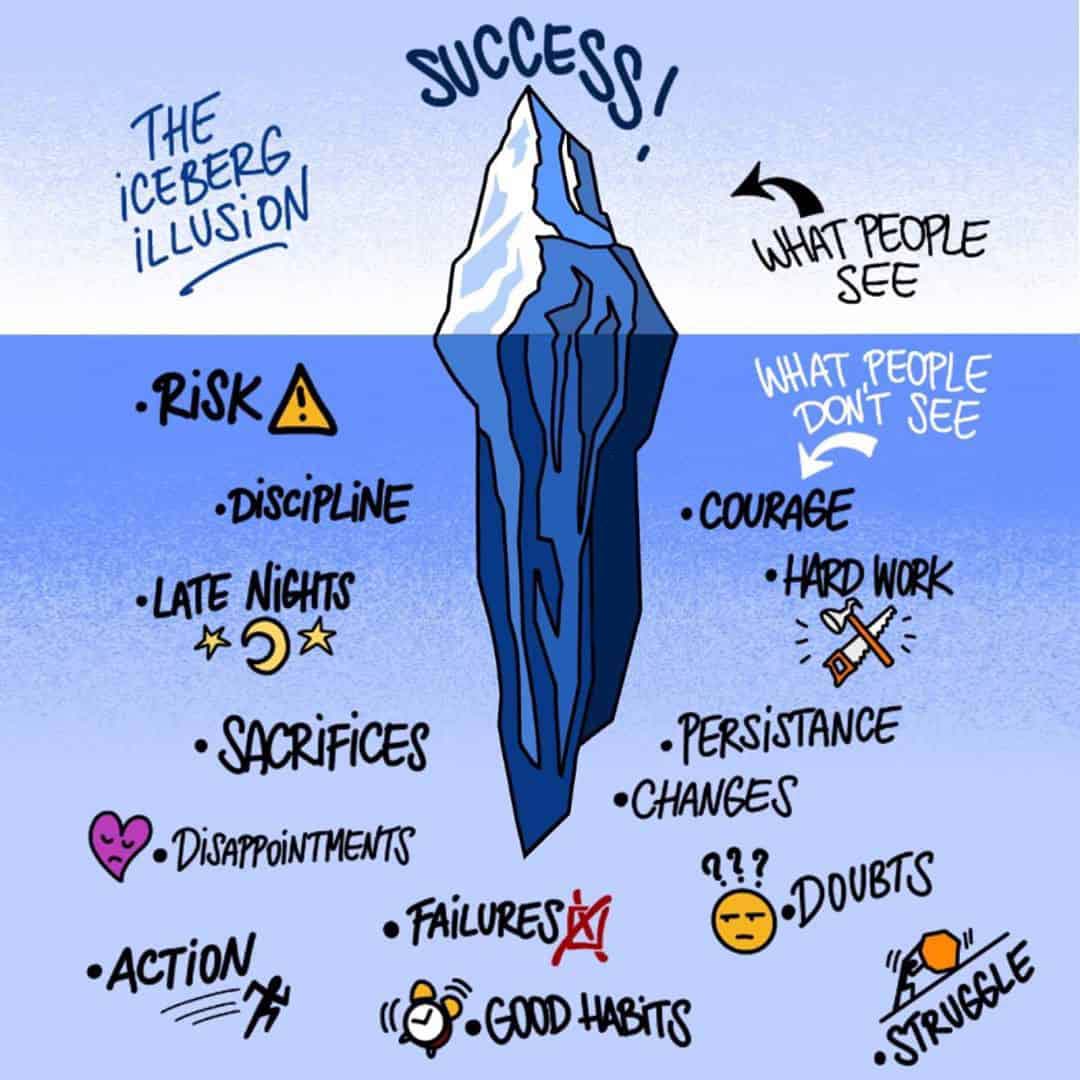 SUCCESS!
THE
ICEBERG
ILLUSION
WHAT PEOPLE
SEE
WHAT PEOPLE
DON'T SEE
•RISK
•DISCIPLINE
•LATE NIGHTS
•SACRIFICES
•DISAPPOINTMENTS
•ACTION
•FAILURES
•GOOD HABITS
•COURAGE
•HARD WORK
•PERSISTANCE
•CHANGES
???
•DOUBTS
•STRUGGLE